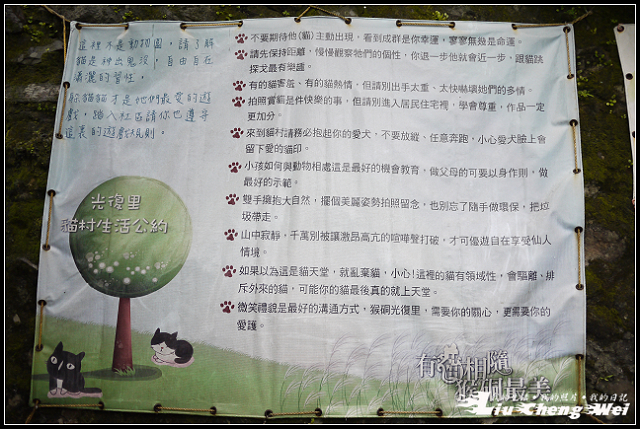 這裡不是動物園，請了解
貓是神出鬼沒，自由自在
瀟灑的習性，
躲貓貓才是牠們最愛的遊
戲，踏入社區請你也遵守
這裏的遊戲規則。
光復里
貓村生活公約
不要期待他(貓)主動出現，看到成群是你幸運，寥寥無幾是命運。
請先保持距離，慢慢觀察牠們的個性，你退一步他就會近一步，跟貓跳
探戈最有樂趣。
有的貓害羞、有的貓熱情，但請別出手太重、太快嚇壞她們的多情。
拍照賞貓是件快樂的事，但請別進入居民住宅裡，學會尊重，作品一定
更加分。
來到貓村請務必抱起你的愛犬，不要放縱、任意奔跑，小心愛犬臉上會
留下愛的貓印。
小孩如何與動物相處這是最好的機會教育，做父母的可要以身作則，做
最好的示範。
雙手擁抱大自然，擺個美麗姿勢拍照留念，也別忘了隨手做環保，把垃
圾帶走。
山中寂靜，千萬別被讓激昂高亢的喧嘩聲打破，才可優遊自在享受仙人
情境。
如果以為這是貓天堂，就亂棄貓，小心!這裡的貓有領域性，會驅離、排
斥外來的貓，可能你的貓最後真的就上天堂。
微笑禮貌是最好的溝通方式，猴硐光復里，需要你的關心，更需要你的
愛護。
有貓相隨
猴硐最美
我的照片・我的日記
Liu Cheng Wei